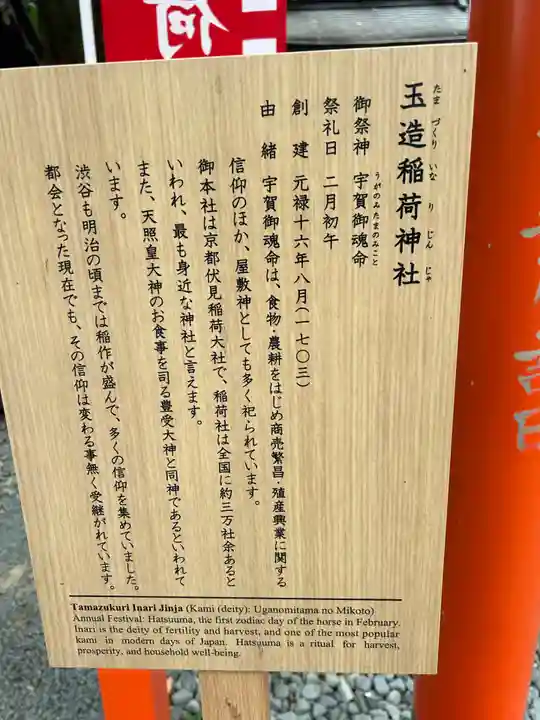 荷
玉造稲荷神社
たま づくり いな り じん じゃ
御祭神 宇賀御魂命
うがのみたまのみこと
祭礼日 二月初午
創建 元禄十六年八月(一七〇三)
由緒 宇賀御魂命は、食物・農耕をはじめ商売繁昌・殖産興業に関する
信仰のほか、屋敷神としても多く祀られています。
御本社は京都伏見稲荷大社で、稲荷社は全国に約三万社余あると
いわれ、最も身近な神社と言えます。
また、天照皇大神のお食事を司る豊受大神と同神であるといわれて
います。
渋谷も明治の頃までは稲作が盛んで、多くの信仰を集めていました。
都会となった現在でも、その信仰は変わる事無く受継がれています。
Tamazukuri Inari Jinja (Kami (deity): Uganomitama no Mikoto)
Annual Festival: Hatsuuma, the first zodiac day of the horse in February.
Inari is the deity of fertility and harvest, and one of the most popular
kami in modern days of Japan. Hatsuuma is a ritual for harvest,
prosperity, and household well-being.